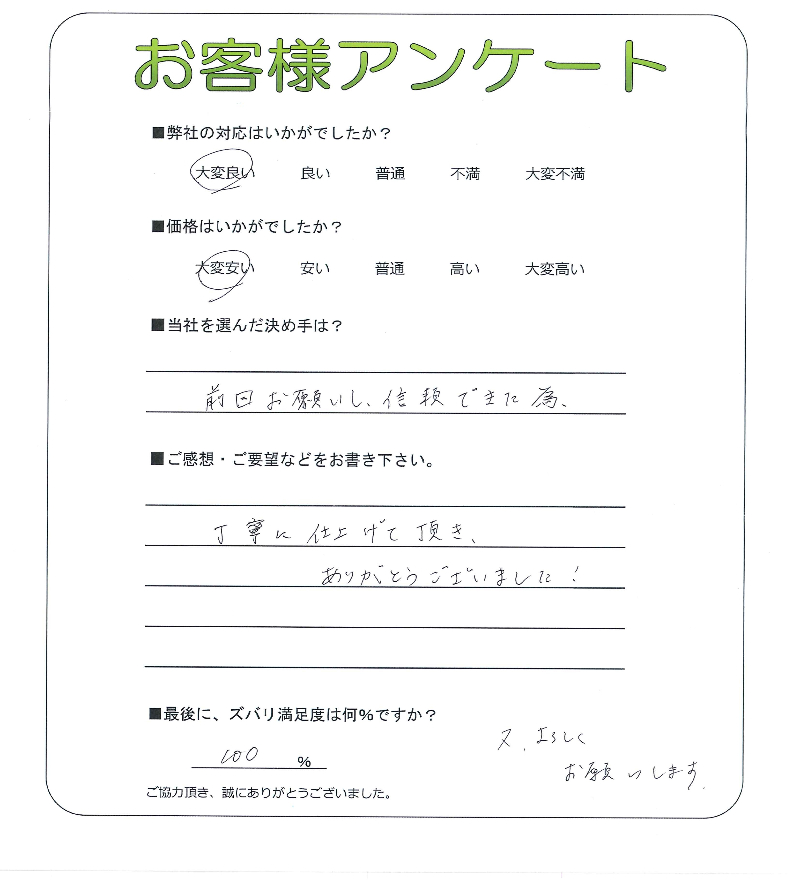 お客様アンケート
■弊社の対応はいかがでしたか？
大変良い　良い　普通　不満　大変不満
■価格はいかがでしたか？
大変安い　安い　普通　高い　大変高い
■当社を選んだ決め手は？
前回お願いし、信頼できた為、
■ご感想・ご要望などをお書き下さい。
丁寧に仕上げて頂き、
ありがとうございました！
■最後に、ズバリ満足度は何％ですか？
100 %
又、よろしく
お願いします。
ご協力頂き、誠にありがとうございました。